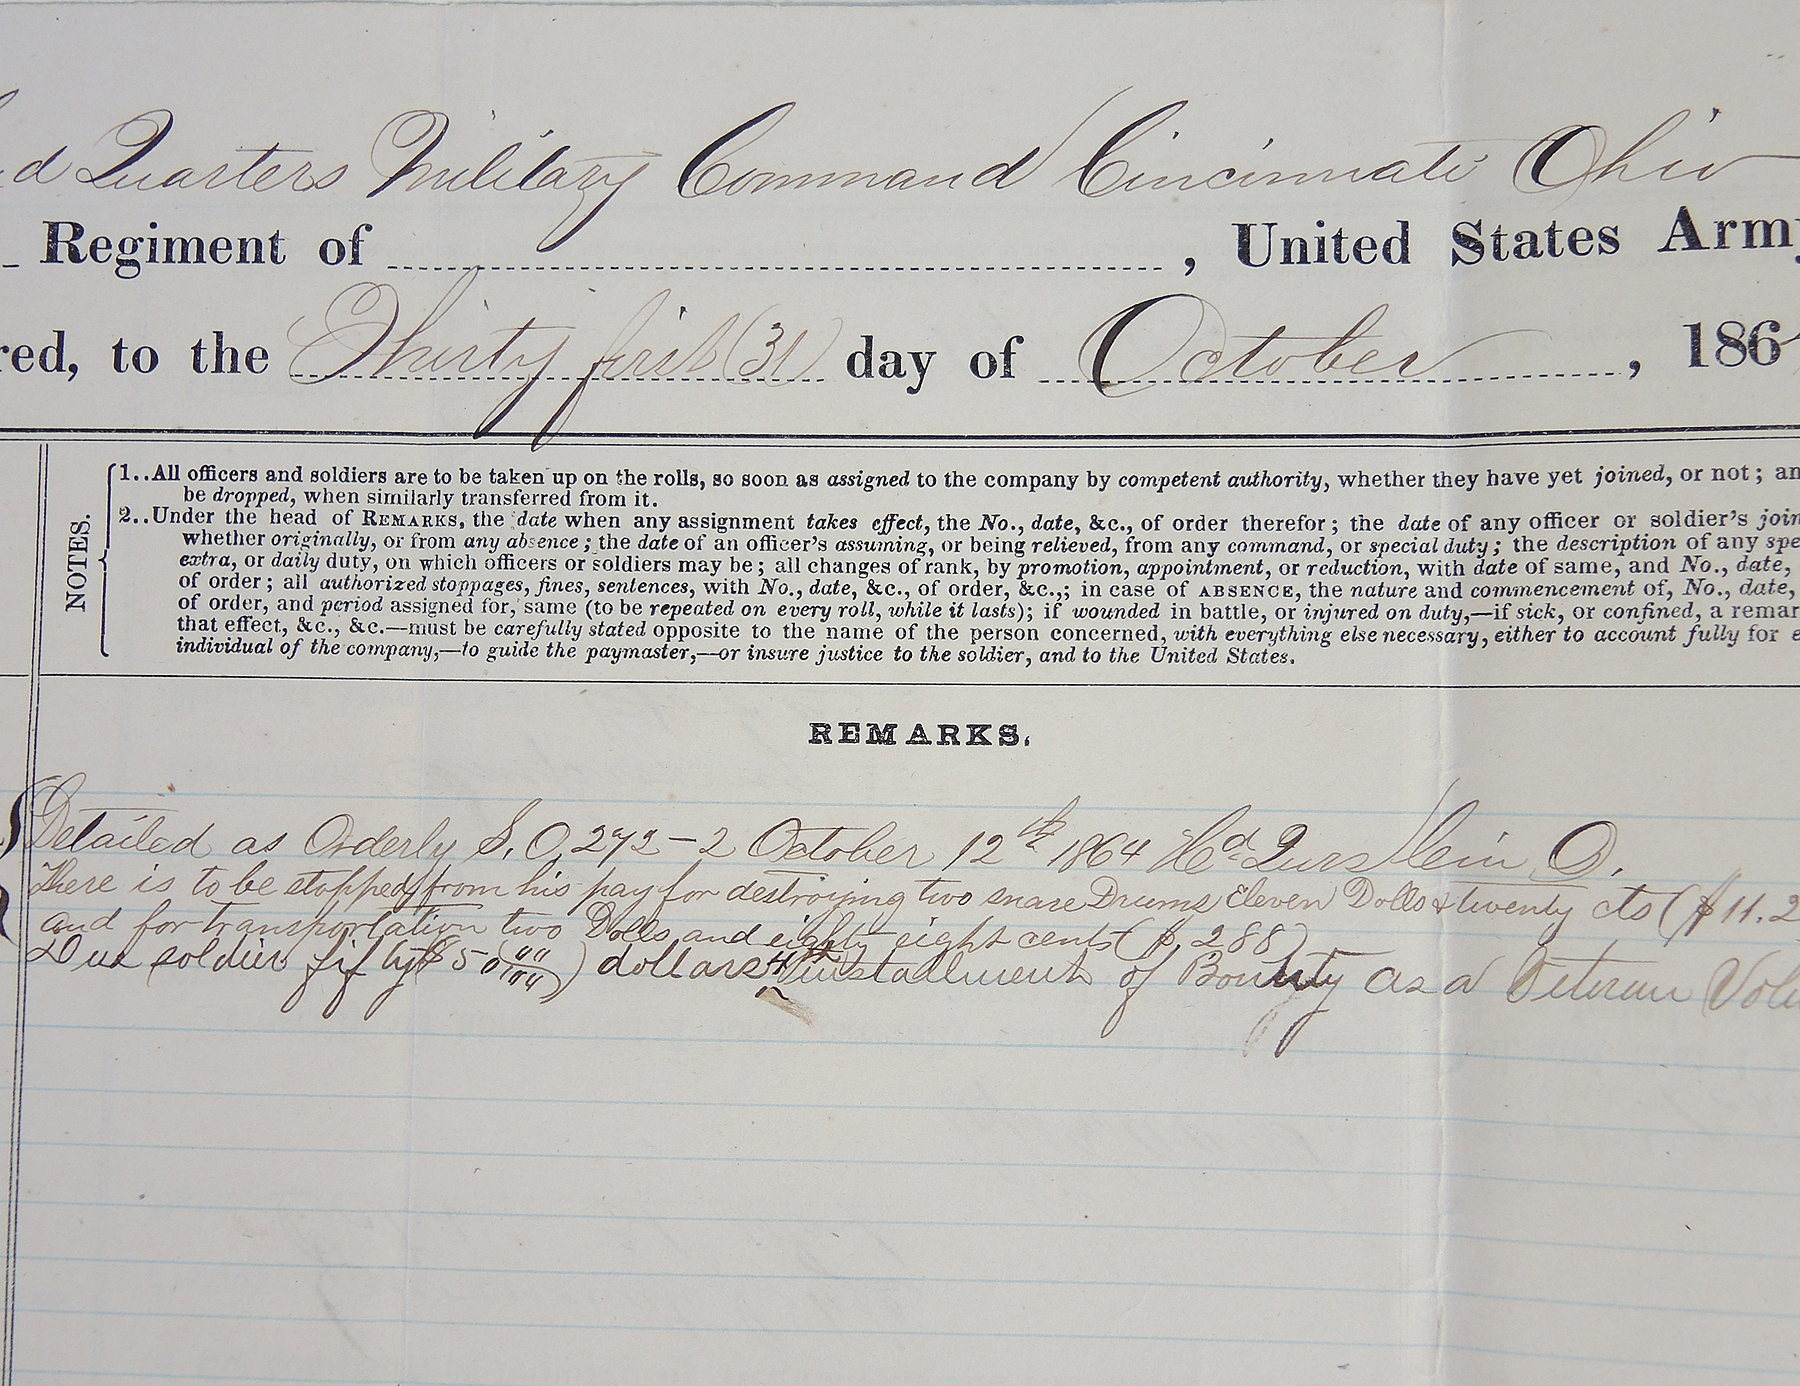 d Quarters Military Command Cincinnati Ohio
Regiment of , United States Army
red, to the Thirty first (31) day of October , 1864
NOTES.
1..All officers and soldiers are to be taken up on the rolls, so soon as assigned to the company by competent authority, whether they have yet joined, or not; an
be dropped, when similarly transferred from it.
2..Under the head of REMARKS, the date when any assignment takes effect, the No., date, &c., of order therefor; the date of any officer or soldier's join
whether originally, or from any absence; the date of an officer's assuming, or being relieved, from any command, or special duty; the description of any spe
extra, or daily duty, on which officers or soldiers may be; all changes of rank, by promotion, appointment, or reduction, with date of same, and No., date,
of order; all authorized stoppages, fines, sentences, with No., date, &c., of order, &c.,; in case of ABSENCE, the nature and commencement of, No., date,
of order, and period assigned for, same (to be repeated on every roll, while it lasts); if wounded in battle, or injured on duty,—if sick, or confined, a remar
that effect, &c., &c.—must be carefully stated opposite to the name of the person concerned, with everything else necessary, either to account fully for e
individual of the company,—to guide the paymaster,—or insure justice to the soldier, and to the United States.
REMARKS.
Detailed as Orderly S. O. 272-2 October 12th 1864 Hd Qurs Cein O.
There is to be stopped from his pay for destroying two snare Drums Eleven Dolls & twenty cts ($11.2
and for transportation two Dolls and eighty eight cents ($ 288)
Due soldier fifty $50 ) dollars 4th installment of Bounty as a Veteran Volu